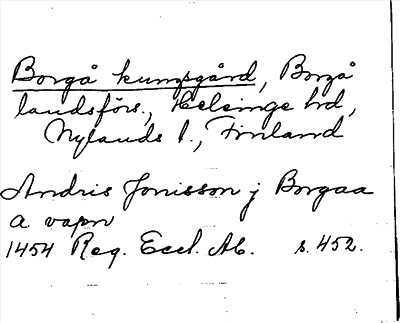 Borgå kungsgård, Borgå
landsförs., Helsinge hd,
Nylands l., Finland
Andris Jonisson j Borgaa
a vapn
1454 Reg. Eccl. Ab. s. 452.